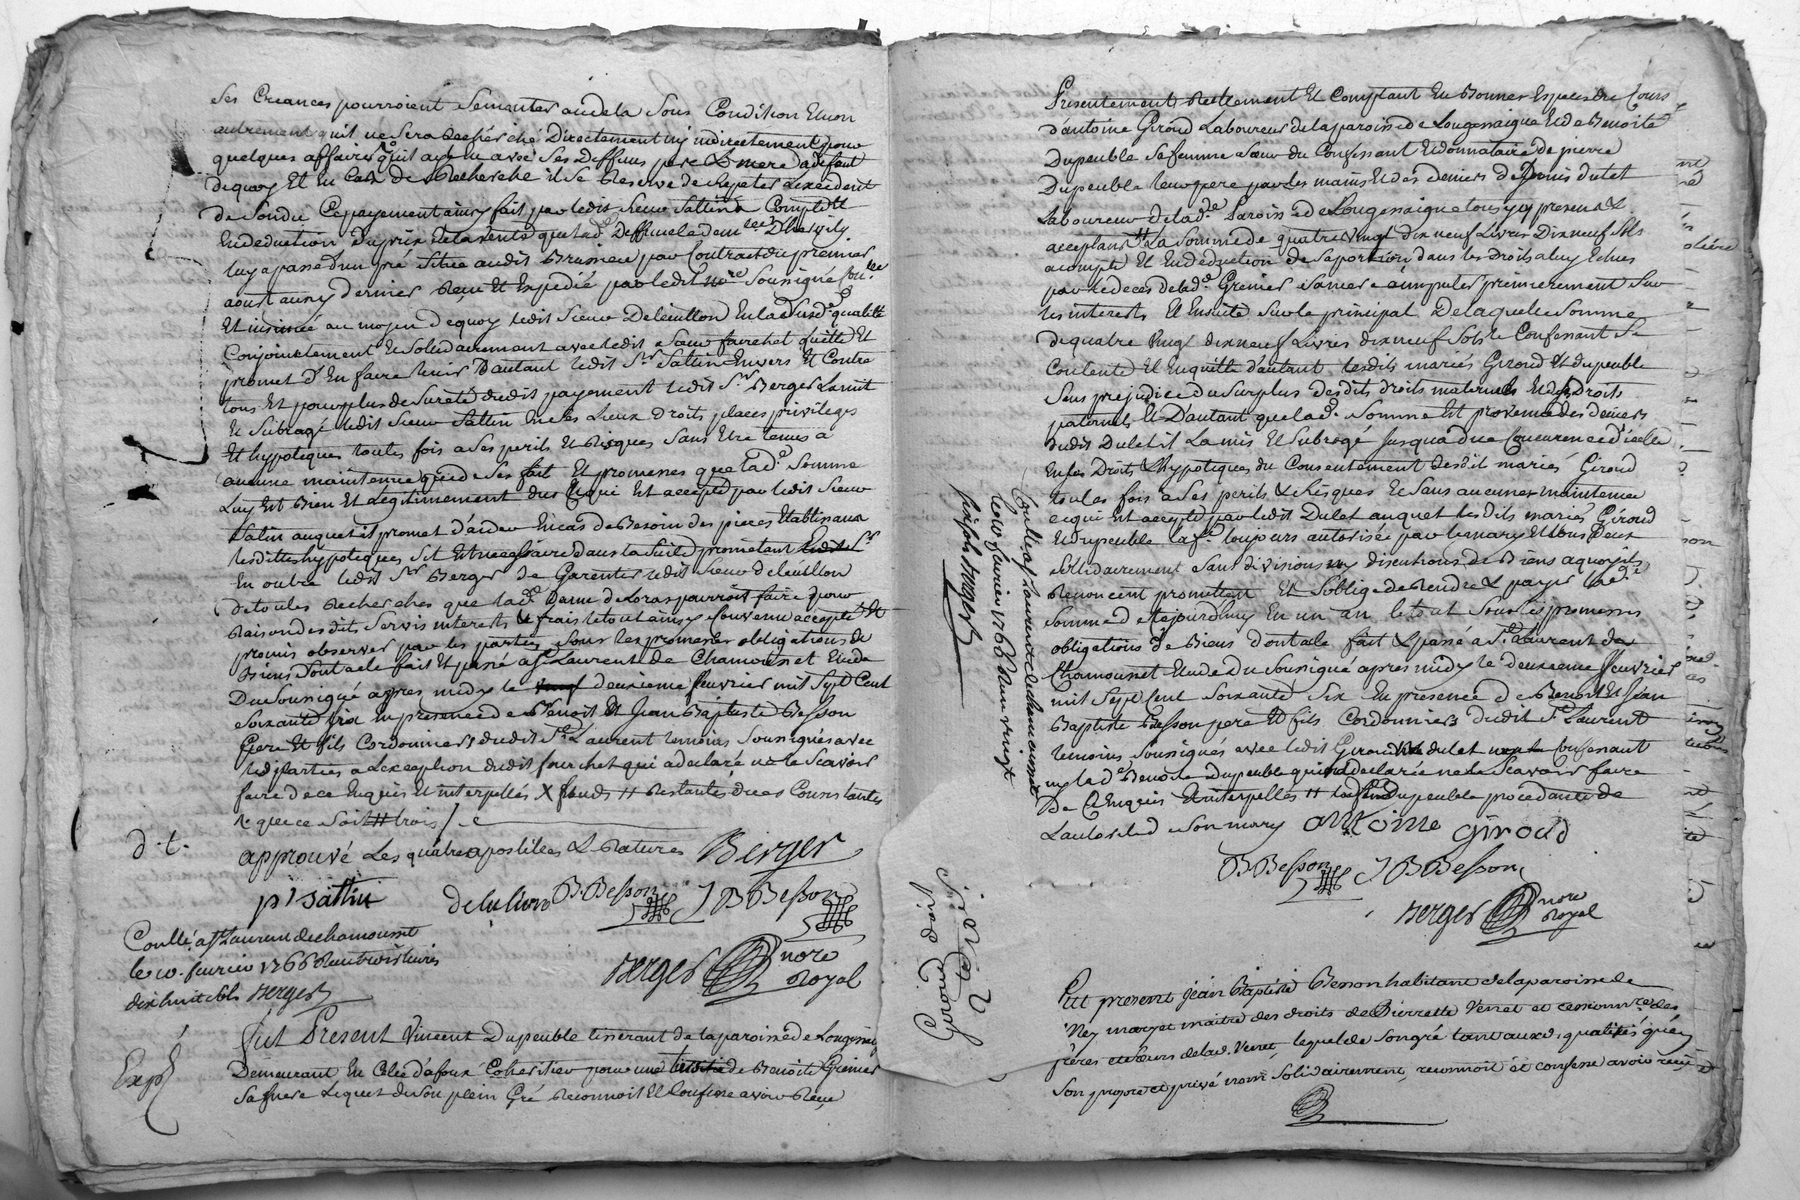 ses Creances pourroient Semonter audela Sous Condition Et non
autrement quil ne Sera Recherché Directement ny indirectement pour
quelques affaires quil ayt eu avec Ses Deffuns pere & mere a deffaut
dequoy Et En Cas de Recherche il Se Reserve de Repeter Lexcedent
de Son du Ce payement ainsy fait par ledit Sieur Sattin a Compte
Endeduction du prix de la vente que lad.e Deffunte
luy a passé dun pré Situé audit Brussieu par Contract du premier
aoust aussy dernier Reçu Et Expedié par ledit no.re Soussigné
Et insinué au moyen dequoy ledit Sieur Deleullion En lad. susd. qualitté
Conjointement Et Solidairement avec ledit fourchet quitte Et
promet d'En faire tenir Dautant ledit S.r Sattin Envers Et Contre
tous Et pour plus de Sureté dudit payement ledit S.r Berger La mit
Et Subrogé ledit Sieur Sattin En Ses Lieux Droits places privileges
Et hypoteques toutes fois a Ses perils Et Risques Sans Etre tenus a
aucune maintenue que de Ses fait Et promesses que lad.e Somme
Luy Est Bien Et Legitimement due Ce qui Est accepté par ledit Sieur
Satin auquel il promet d'aider En cas de Besoin des pieces Etablissant
lesdittes hypoteques Sil Est necessaire dans la Suite promettant
En outre ledit S.r Berger de Garentir ledit Sieur deleullion
de toutes Recherches que lad.e Dame deloras pourroit faire pour
Raison desdits Servis interests & frais le tout ainsy Convenu accepté
promis observer par les parties Sous les promesses obligations de
Biens dont acte fait Et passé a S.t Laurent de Chamousset Etude
Du Soussigné apres midy le deuxieme feuvrier mil Sept Cent
Soixante Six En presence de Benoit Et Jean Baptiste Besson
Pere Et fils Cordonniers dudit S.t Laurent temoins Soussignés avec
lesd. parties a Lexception dudit fourchet qui a declaré ne le Scavoir
faire de ce Enquis Et interpellés X
approuvé Les quatre apostilles & Ratures Berger
d. t.
p.re Sattin deleullion B. Besson J B Besson
Conllé a S.t Laurent de chamousset
le 10. fevrier 1766 Reçu trois livres
dix huit sols Berger
Berger no.re Royal
Exp.é
fut Present Vincent Dupeuble tisserant de la paroisse de Longessaigne
Demeurant En Celle d'afoux Coheritier pour une de Benoite Grenier
Sa mere Lequel de Son plein Gré Reconnoit Et Confesse avoir Reçu
Presentement Reellement Et Comptant En Bonnes Especes de Cours
d'antoine Giroud Laboureur de la paroisse de Longessaigne Et de Benoite
Dupeuble Sa femme Sœur du Confessant Et donnataire de pierre
Dupeuble leur pere par les mains Et des deniers de Denis dulet
Laboureur de lad.e Paroisse de Longessaigne tous icy presens &
acceptans La Somme de quatre vingt dix neuf Livres Dix neuf Sols
acompte Et En deduction de Sa portion dans les Droits a luy Echus
par le deces de lad.e Grenier Sa mere a imputer premierement Sur
les interests Et Ensuite Sur le principal De laquelle Somme
de quatre Vingt dix neuf Livres dix neuf Sols le Confessant Se
Contente Et En quitte d'autant lesdits mariés Giroud Et dupeuble
Sans prejudice du Surplus desdits droits maternels Et des Droits
paternels Et D'autant que lad.e Somme Est provenue des deniers
dudit Dulet il La mis Et Subrogé Jusqua due Concurrence d'icelle
En les Droits & hypoteques du Consentement desdits mariés Giroud
toutes fois a Ses perils & Risques Et Sans aucunes maintenue
ce qui Est accepté par ledit Dulet auquel lesdits mariés Giroud
Et dupeuble la f.e toujours autorisée par le mary Et tous Deux
Solidairement Sans divisions ny discutions de Biens a quoy ils
Renoncent promettent Et S'oblige de Rendre & payer lad.e
Somme d'aujourdhuy En un an le tout Sous les promesses
obligations de Biens dont acte fait & passé a S.t Laurent de
Chamousset Etude du Soussigné apres midy le deuxieme feuvrier
mil Sept Cent Soixante Six En presence de Benoit Et Jean
Baptiste Besson pere Et fils Cordonniers dudit S.t Laurent
temoins Soussignés avec ledit Giroud dulet Confessant
ny lad.e Benoite dupeuble qui ont declarée ne le Scavoir faire
de Ce Enquis Et interpellés lad. dupeuble procedante de
Lautorité de Son mary antoine giroud
B. Besson J B Besson
Berger no.re Royal
Conllé a S.t Laurent de chamousset
le 10 fevrier 1766 Reçu vingt
six sols Berger
Giroud doit
Fut present Jean Baptiste Besson habitant de la paroisse de
Ney mary et maitre des droits de Pierrette Verret et cessionn.re des
freres et sœurs de lad. Verret, lequel de son gré tant auxd. qualités qu'en
Son propre et privé nom Solidairement, reconnoit et confesse avoir reçu